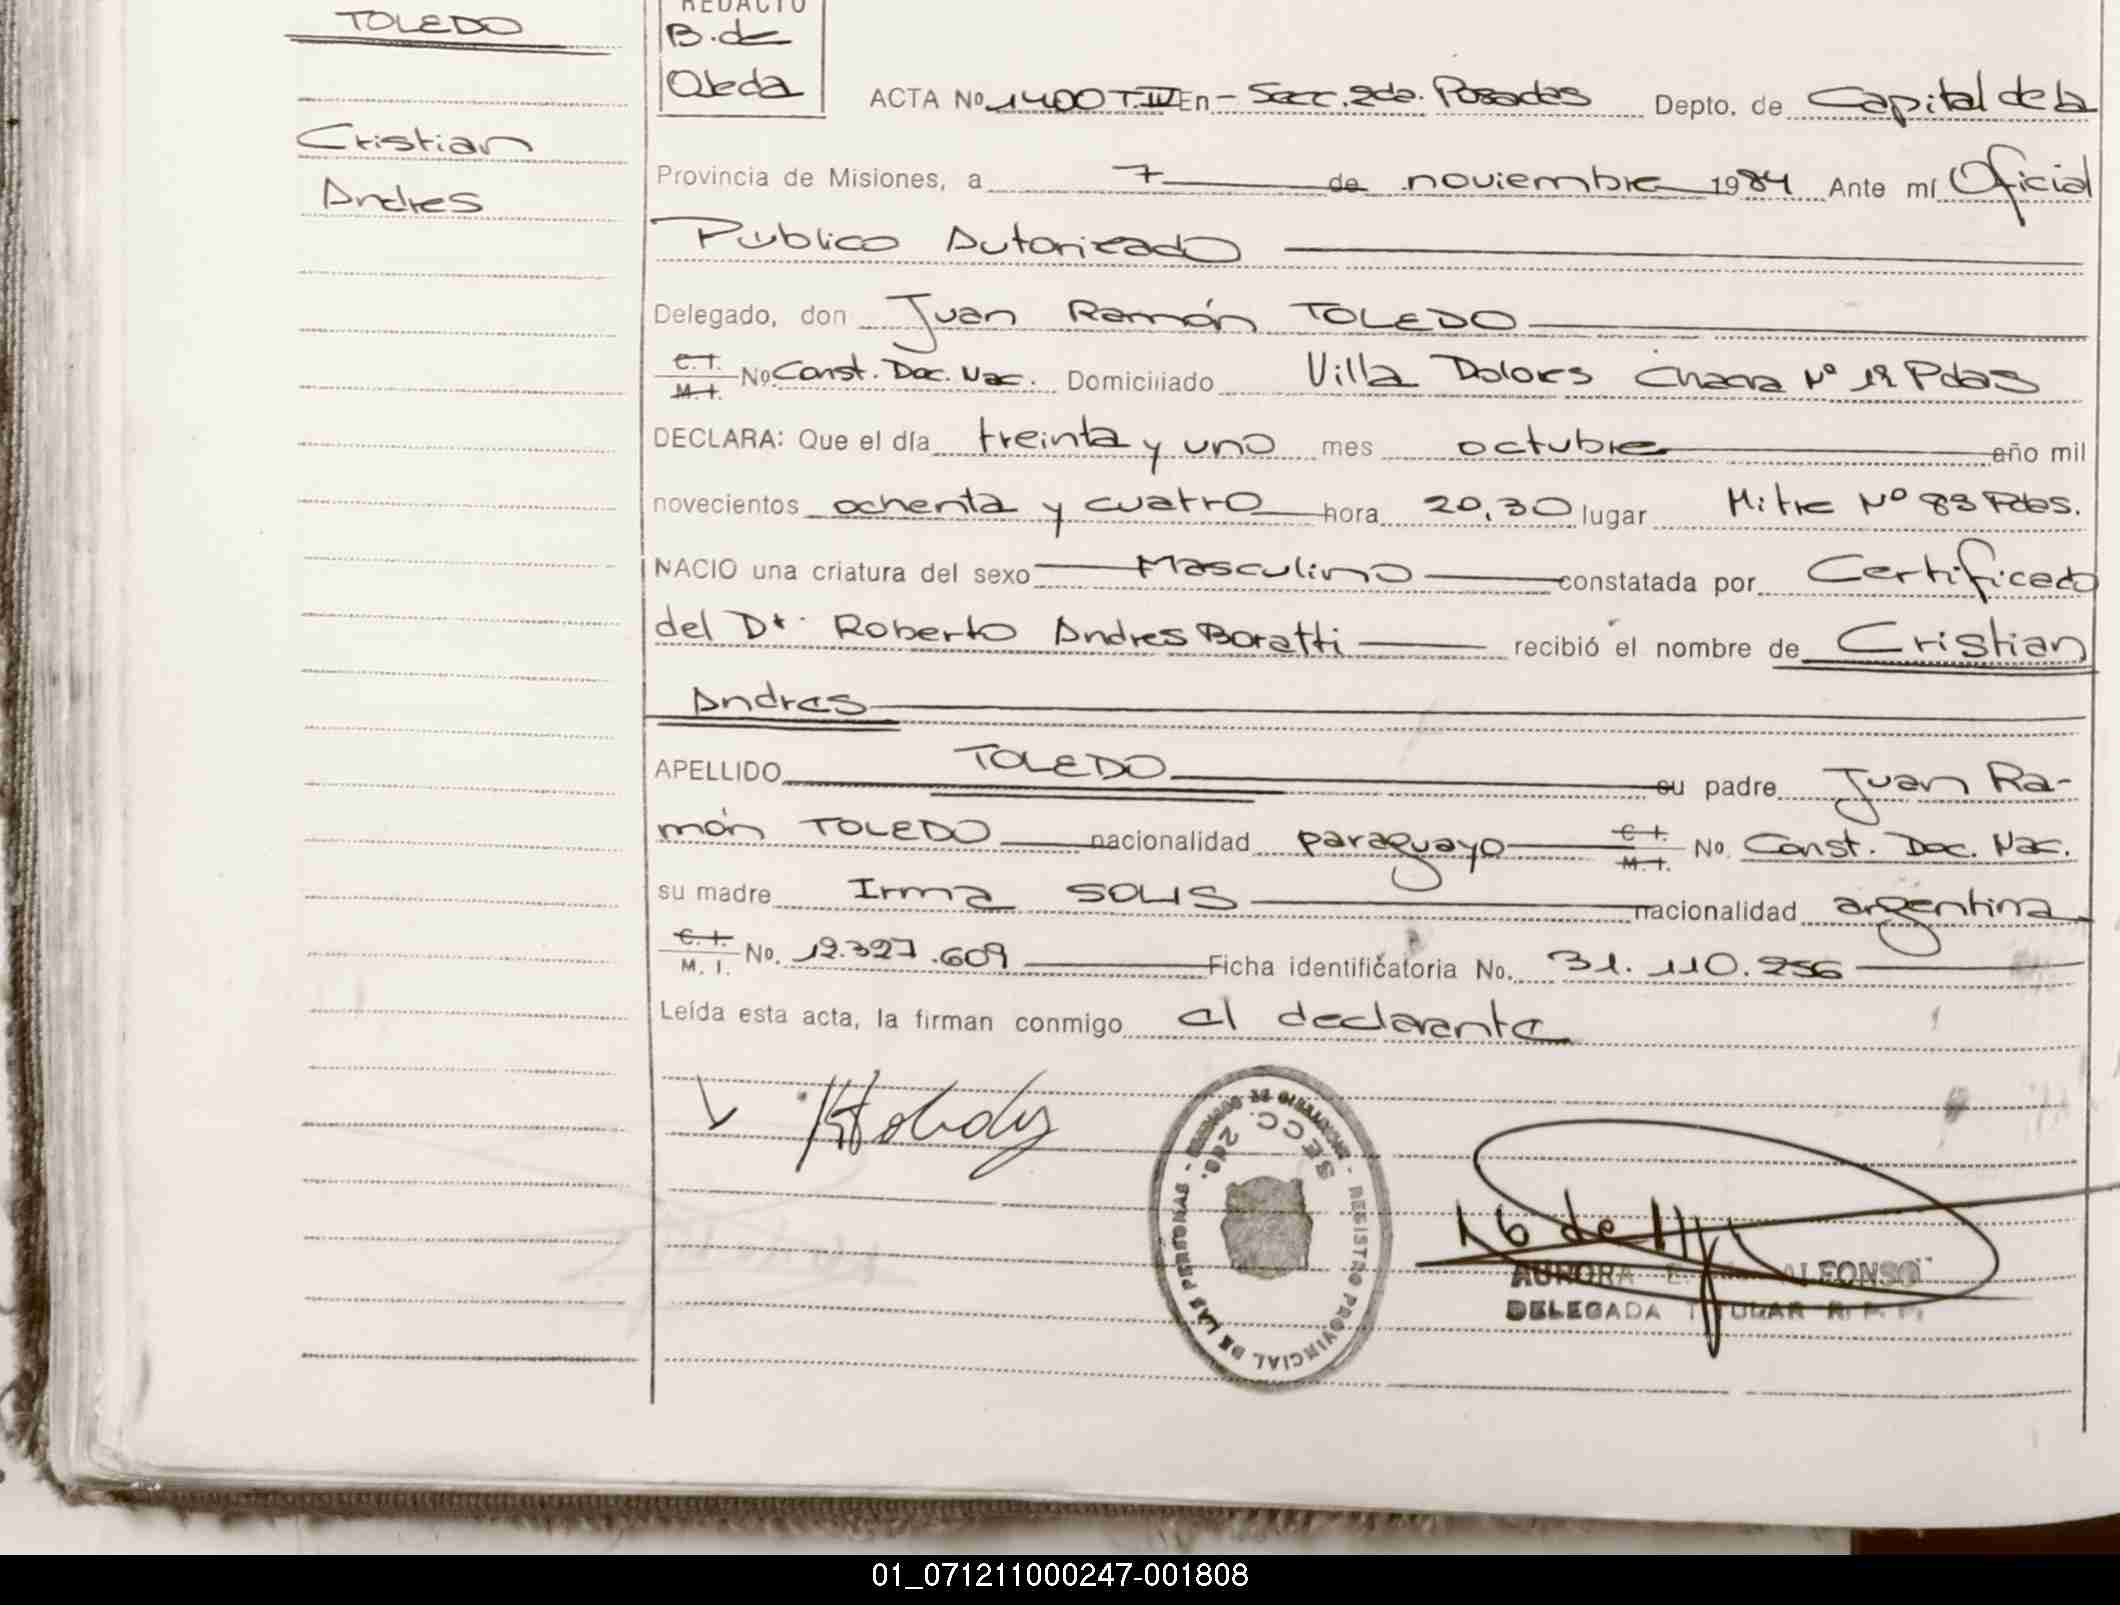 TOLEDO
Cristian
Andres
REDACTO
B. de
Ojeda
ACTA No 1400 T.IV En - Secc. 2da. Posadas Depto. de Capital de la
Provincia de Misiones, a 7 de noviembre 1984 Ante mí Oficial
Público Autorizado
Delegado, don Juan Ramón TOLEDO
C.I. M.I. No Const. Doc. Nac. Domiciliado Villa Dolores Chacra Nº 12 Pdas
DECLARA: Que el día treinta y uno mes octubre año mil
novecientos ochenta y cuatro hora 20,30 lugar Mitre Nº 83 Pdas.
NACIO una criatura del sexo Masculino constatada por Certificado
del Dr. Roberto Andres Boratti recibió el nombre de Cristian
Andres
APELLIDO TOLEDO su padre Juan Ra-
món TOLEDO nacionalidad paraguayo C.I. M.I. No. Const. Doc. Nac.
su madre Irma SOLIS nacionalidad argentina
C.I. M.I. No. 12.327.609 Ficha identificatoria No. 31.110.256
Leída esta acta, la firman conmigo el declarante
REGISTRO PROVINCIAL DE LAS PERSONAS
SECC. 2da.
AURORA ALFONSO
DELEGADA TITULAR R. P. P.
01_071211000247-001808